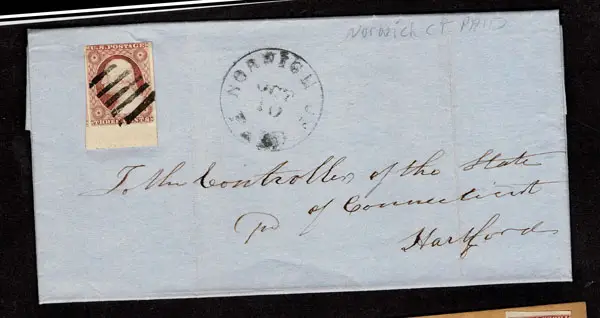 Norwich CT PAID
U.S. POSTAGE
THREE CENTS
NORWICH CN
OCT
10
To the Controller of the State
of Connecticut
Hartford